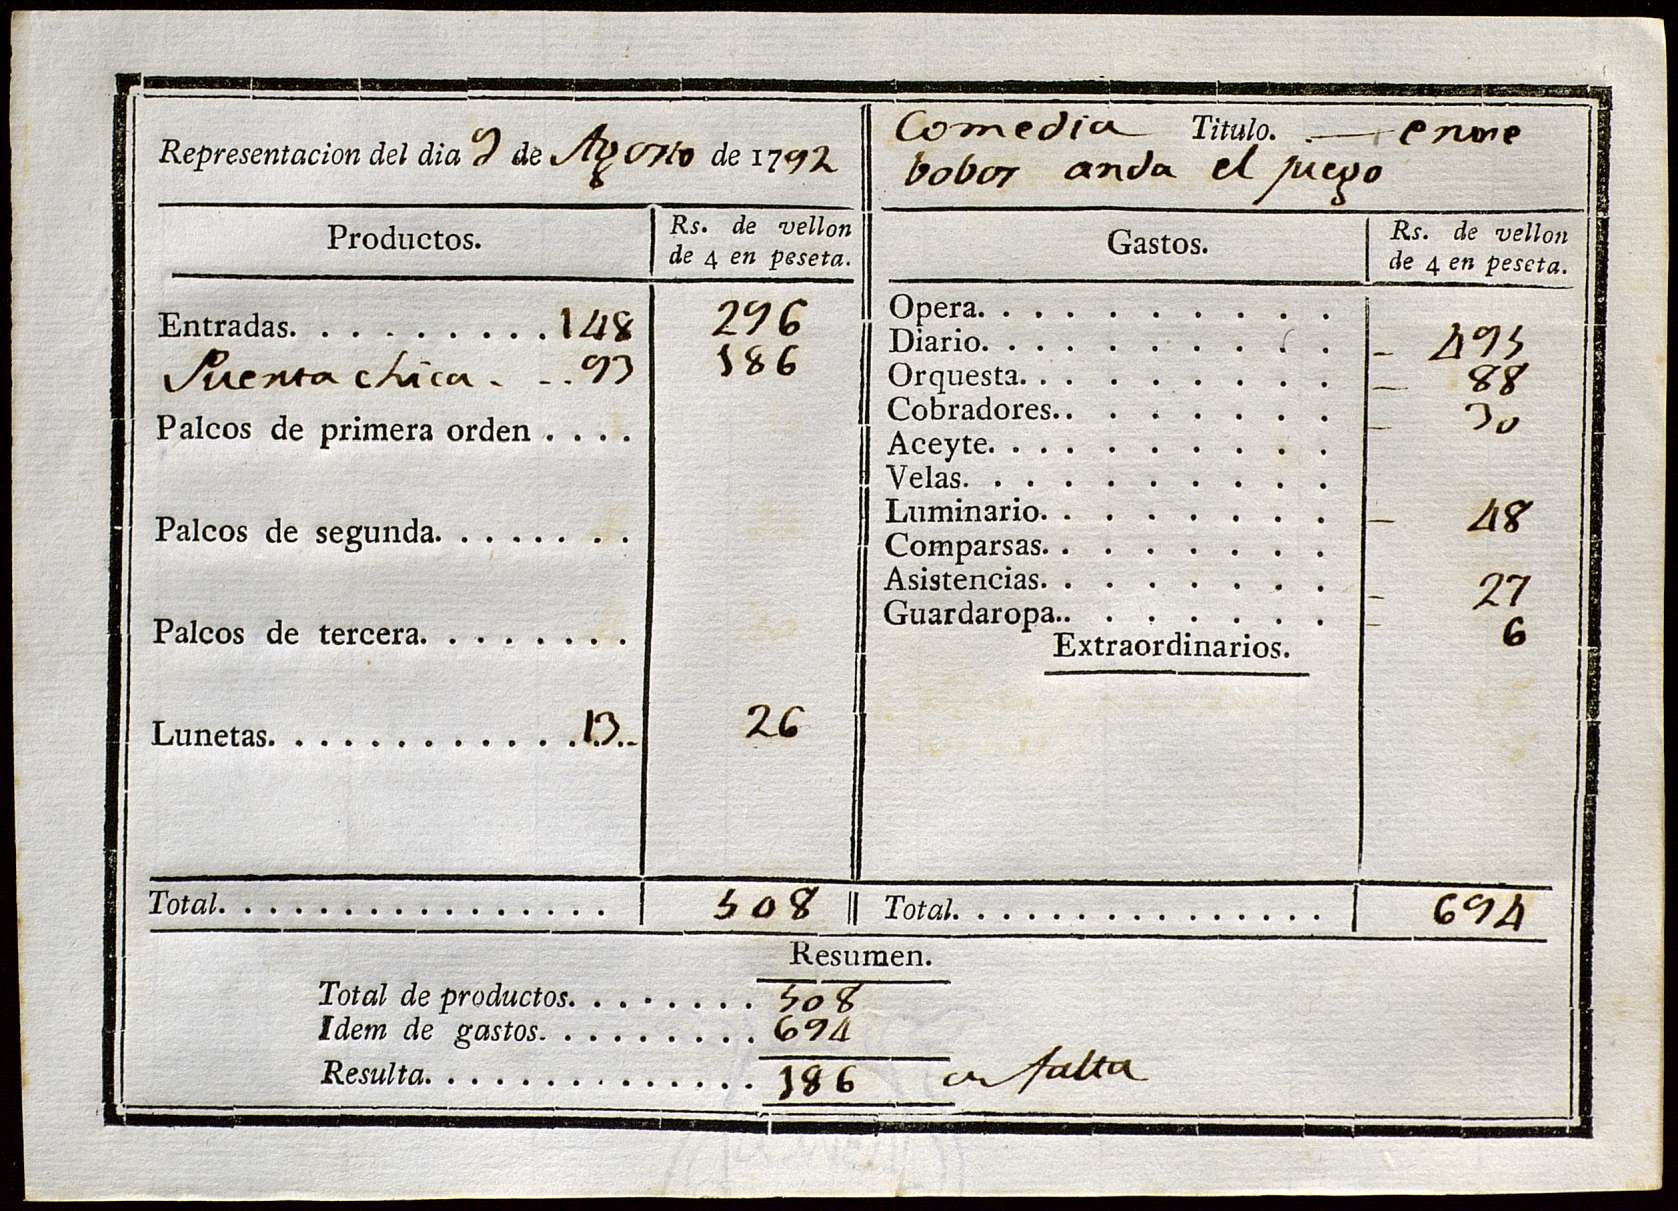 Representacion del dia 9 de Agosto de 1792
Productos. Rs. de vellon de 4 en peseta.
Entradas. . . . . . . . . . 148 296
Puerta chica . . . 93 186
Palcos de primera orden . . . .
Palcos de segunda. . . . . . . .
Palcos de tercera. . . . . . . .
Lunetas. . . . . . . . . . . . . 13 26
Total. . . . . . . . . . . . . . . . 508
Comedia Titulo. — entre
bobos anda el juego
Gastos. Rs. de vellon de 4 en peseta.
Opera. . . . . . . . . .
Diario. . . . . . . . . . 495
Orquesta. . . . . . . . . 88
Cobradores. . . . . . . . 30
Aceyte. . . . . . . . . .
Velas. . . . . . . . . .
Luminario. . . . . . . . 48
Comparsas. . . . . . . .
Asistencias. . . . . . . . 27
Guardaropa. . . . . . . . 6
Extraordinarios.
Total. . . . . . . . . . . . . . . . 694
Resumen.
Total de productos. . . . . . . . 508
Idem de gastos. . . . . . . . . 694
Resulta. . . . . . . . . . . . . . 186 en falta